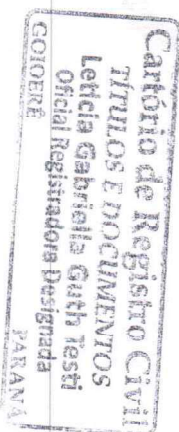 Cartório de Registro Civil
TÍTULOS E DOCUMENTOS
Leticia Gabriella Guth Testi
Oficial Registradora Designada
GOIOERÊ PARANÁ